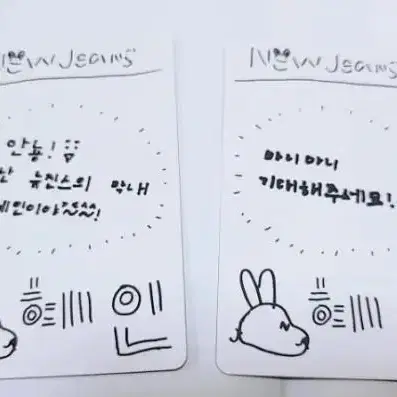 NEW JEANS
안뇽!
뉴진스의 막내
혜인이야
NEW JEANS
마니마니
기대해주세요!